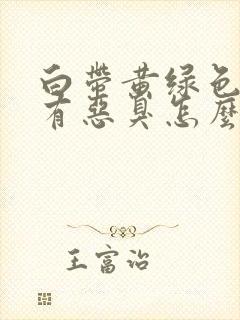 白带黄绿色
有恶臭怎麽
王富治